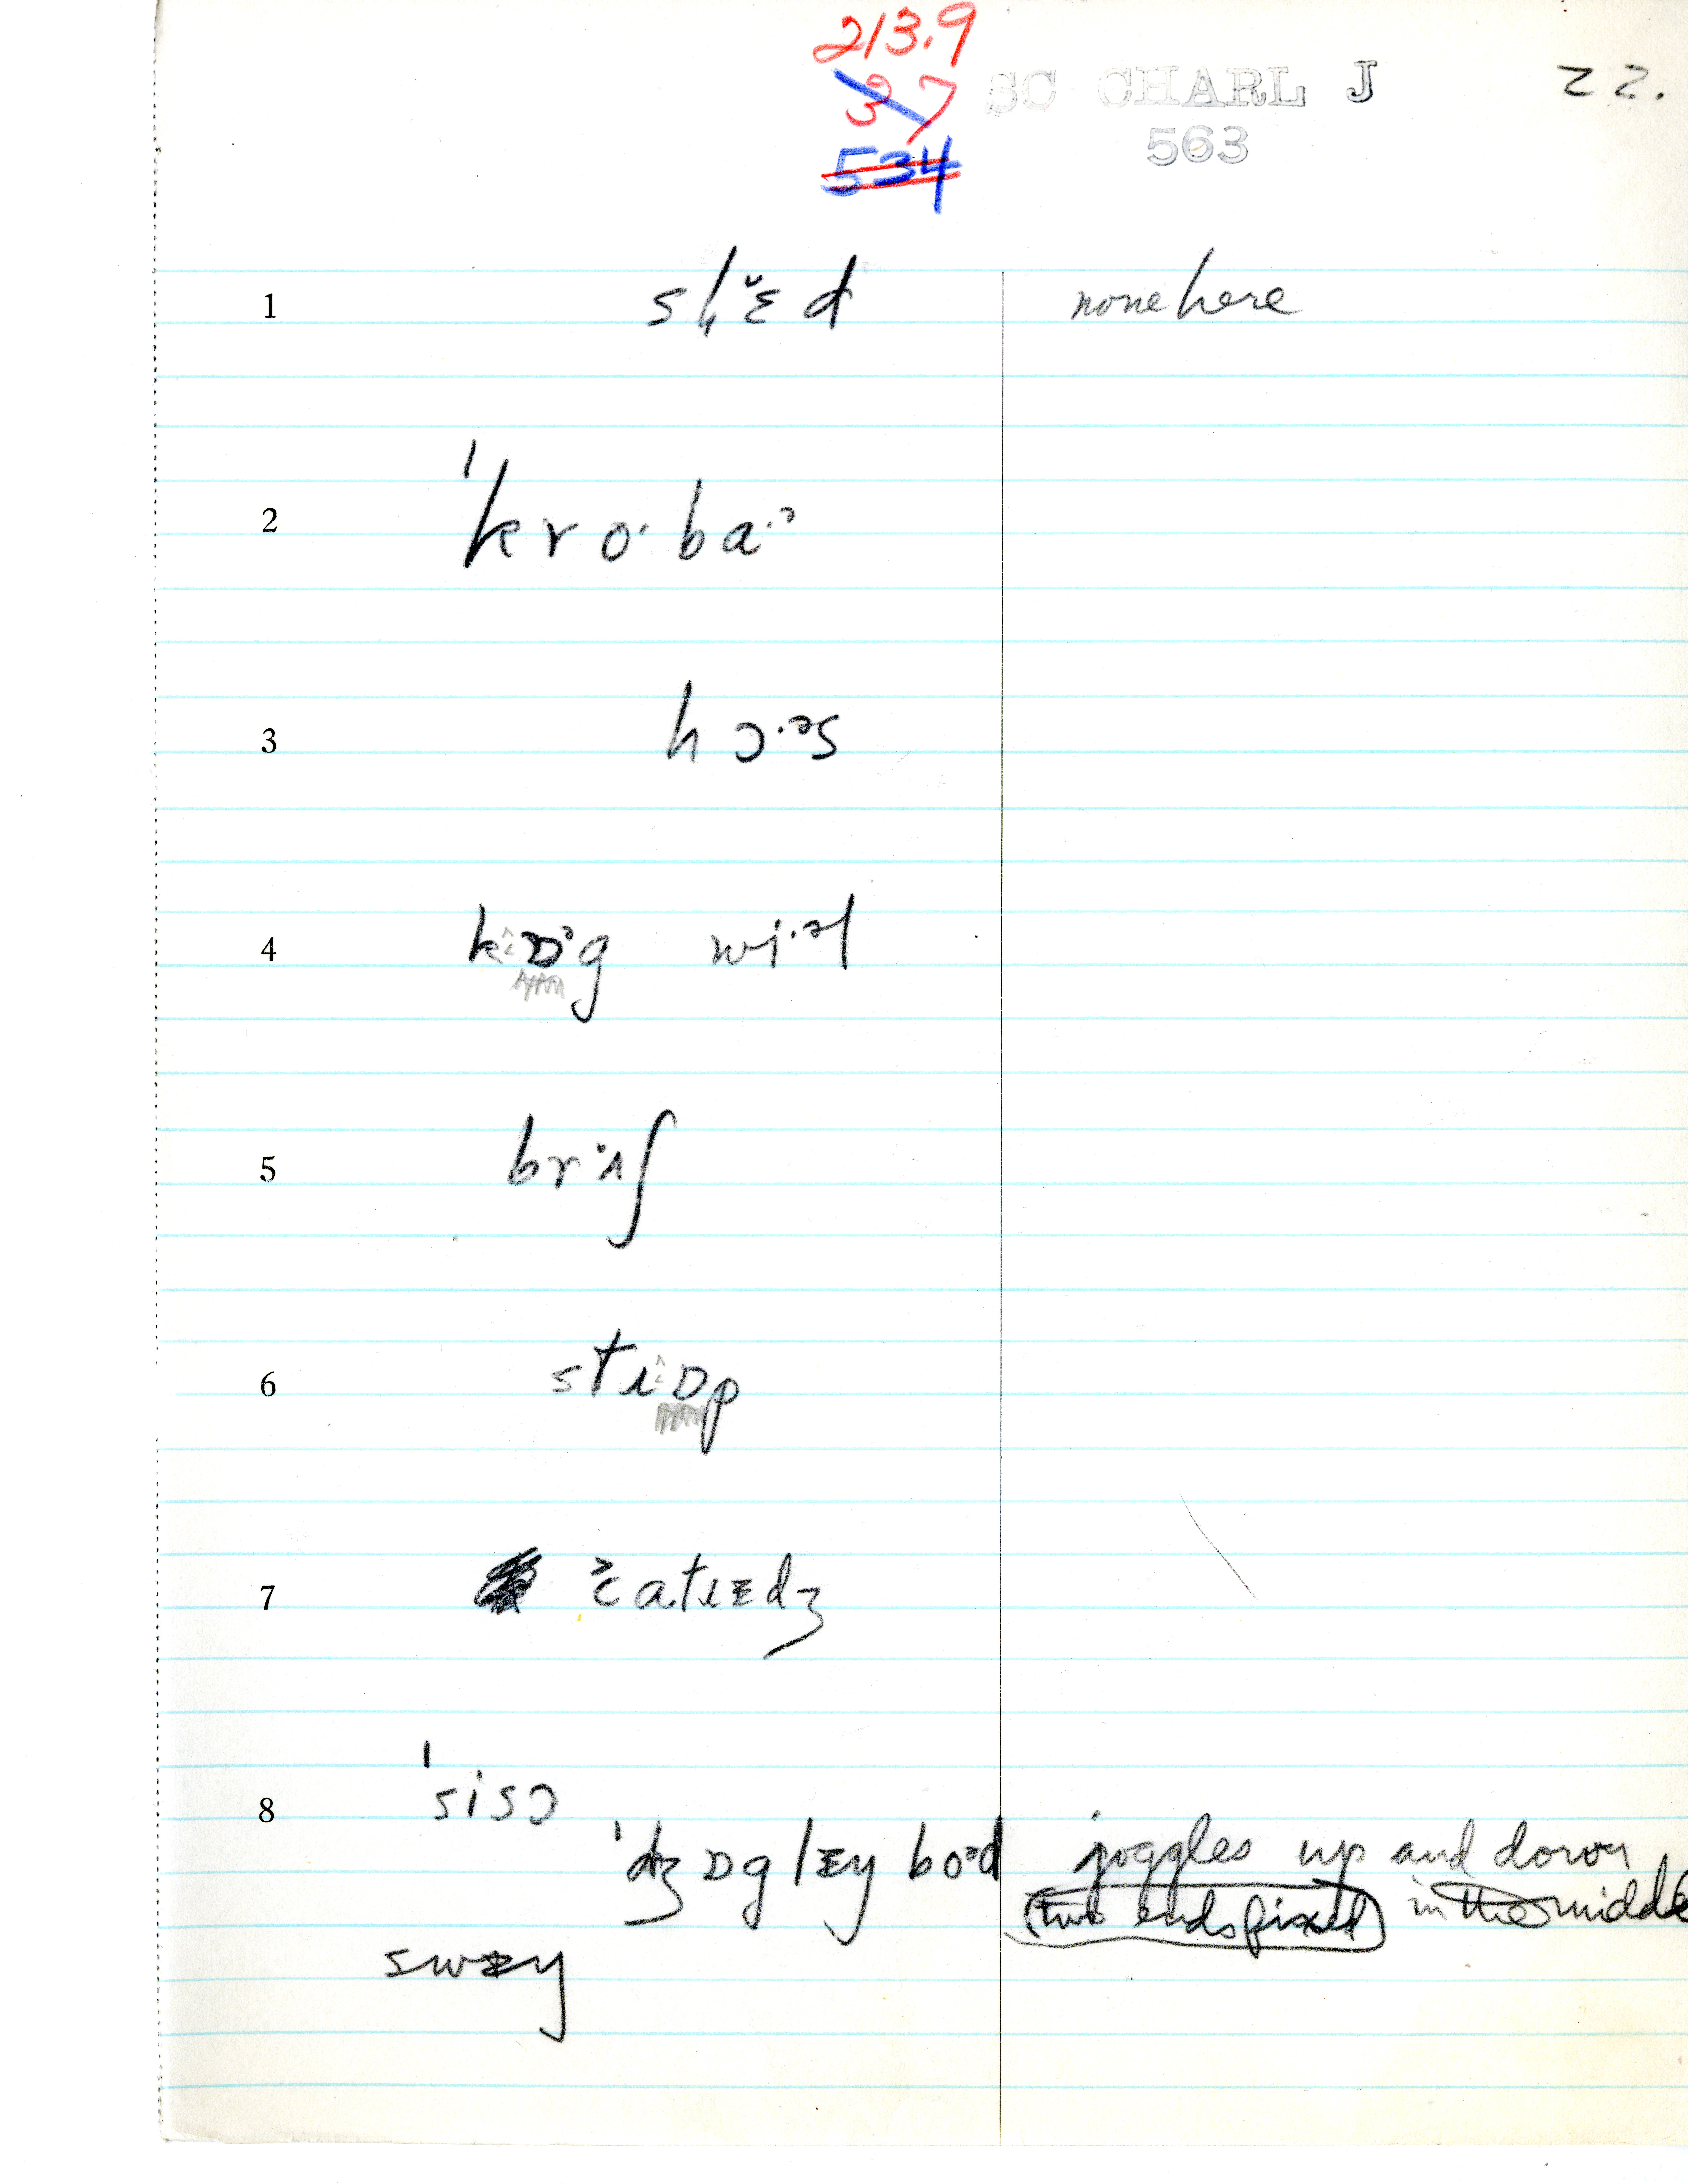 213.9
37
534
SC CHARL J
563
22.
1 slɛ̆d none here
2 ˈkro·ba·ᵊ
3 hɔ·ᵊs
4 wi·ᵊl
5 brʌʃ
6
7
8 ˈsisɔ
ˈdʒɒglɛy boᵊd joggles up and down
(two ends fixed) in the middle
swɛy